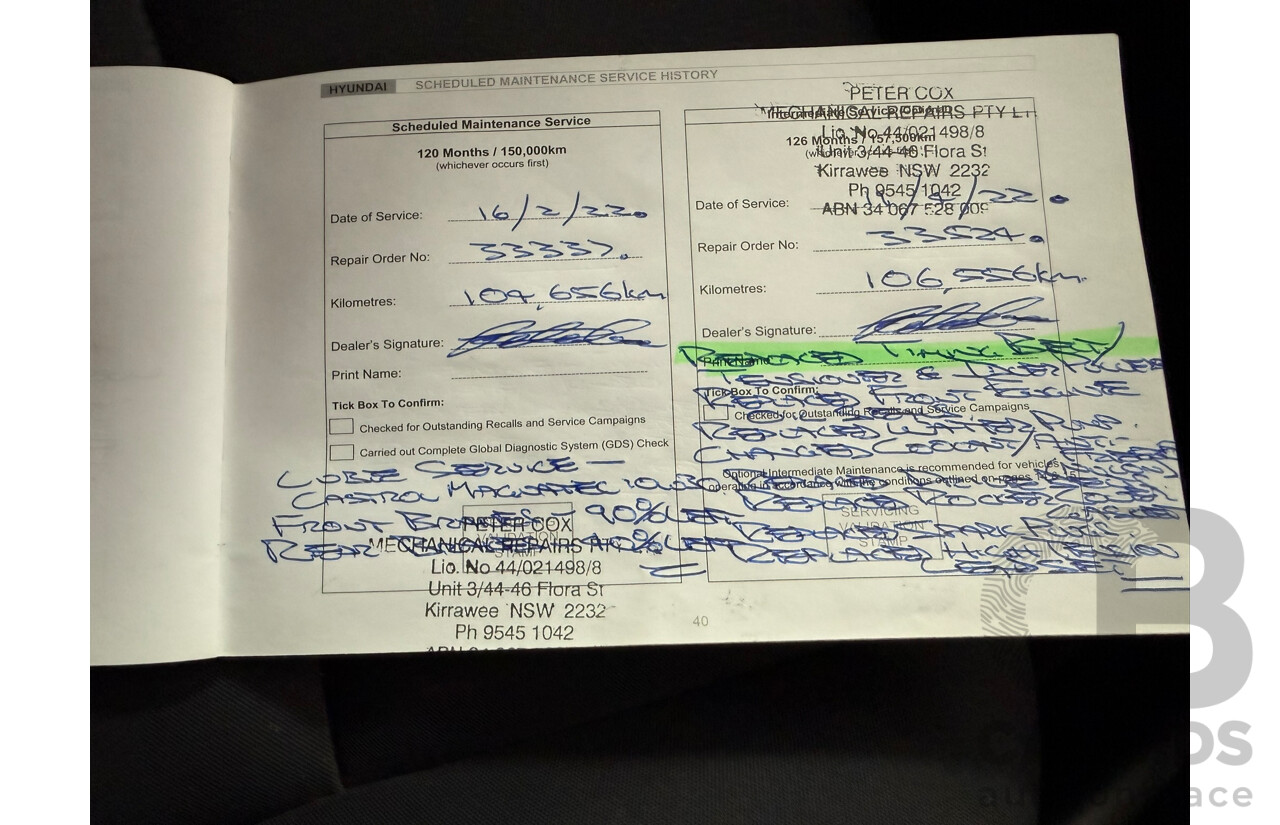 HYUNDAI SCHEDULED MAINTENANCE SERVICE HISTORY
Scheduled Maintenance Service
120 Months / 150,000km
(whichever occurs first)
Date of Service: 16/2/22.
Repair Order No: 33337.
Kilometres: 104,656km
Dealer's Signature:
Print Name:
Tick Box To Confirm:
Checked for Outstanding Recalls and Service Campaigns
Carried out Complete Global Diagnostic System (GDS) Check
LUBE SERVICE –
CASTROL MAGNATEC 10W30
FRONT BRAKES – 90% LEFT
REAR 90% LEFT
VALIDATION
STAMP
PETER COX
MECHANICAL REPAIRS PTY
Lic. No 44/021498/8
Unit 3/44-46 Flora St
Kirrawee NSW 2232
Ph 9545 1042
PETER COX
MECHANICAL REPAIRS PTY LT
Lic. No 44/021498/8
Unit 3/44-46 Flora St
Kirrawee NSW 2232
Ph 9545 1042
ABN 34 067 528 009
Intermediate Service (Optional)
126 Months / 157,500km
Date of Service: /22.
Repair Order No: 33524.
Kilometres: 106,556km.
Dealer's Signature:
Print Name
REPLACED TIMING BELT
TENSIONER & IDLER
REPLACED FRONT ENGINE
Tick Box To Confirm:
Checked for Outstanding Recalls and Service Campaigns
REPLACED WATER PUMP.
CHANGED COOLANT/ANTI-
Optional Intermediate Maintenance is recommended for vehicles
operating in accordance with the conditions outlined on pages
REPLACED ROCKER COVER
REPLACED SPARK PLUGS
REPLACED HIGH TENSION
SERVICING
VALIDATION
STAMP
40
B